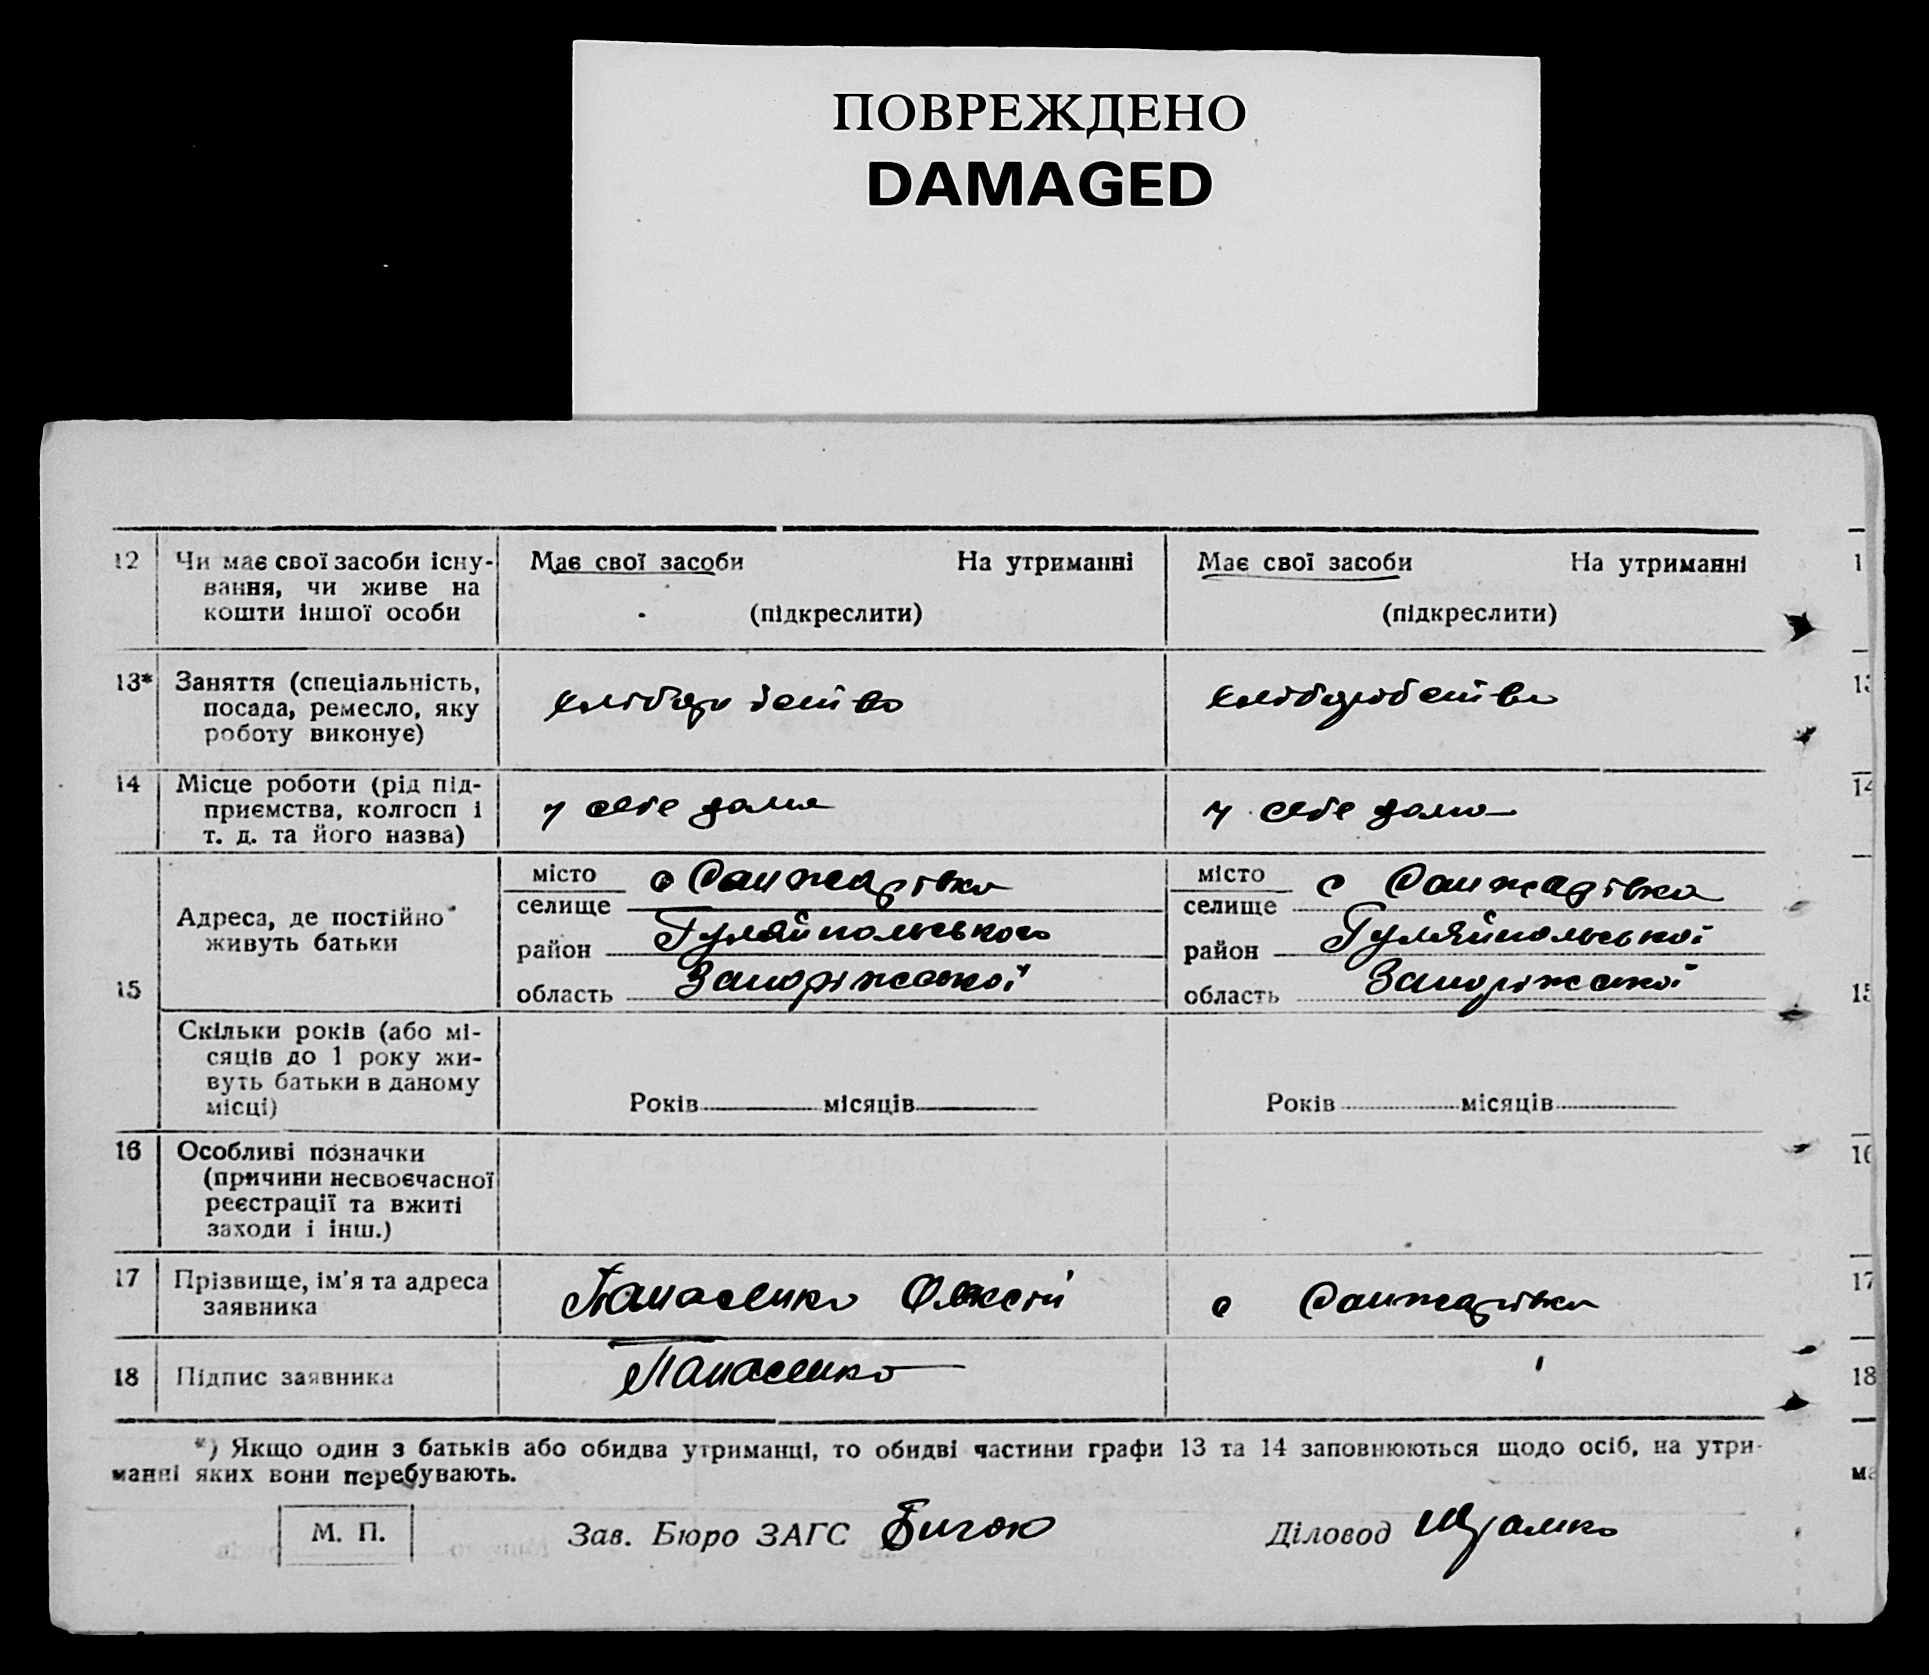 ПОВРЕЖДЕНО
DAMAGED
12 Чи має свої засоби існу- Має свої засоби На утриманні Має свої засоби На утриманні 1
вання, чи живе на
кошти іншої особи (підкреслити) (підкреслити)
13* Заняття (спеціальність, 13
посада, ремесло, яку хліборобство хліборобство
роботу виконує)
14 Місце роботи (рід під- 14
приємства, колгосп і у себе дома у себе дома
т. д. та його назва)
місто с Санжарівка місто с Санжарівка
Адреса, де постійно селище селище
живуть батьки район Гуляйпольського район Гуляйпольської
15 область Запоріжської область Запоріжської 15
Скільки років (або мі-
сяців до 1 року жи-
вуть батьки в даному
місці) Років місяців Років місяців
16 Особливі позначки 16
(причини несвоєчасної
реєстрації та вжиті
заходи і інш.)
17 Прізвище, ім'я та адреса Панасенко Олексій с Санжарівка 17
заявника
18 Підпис заявника Панасенко 18
*) Якщо один з батьків або обидва утриманці, то обидві частини графи 13 та 14 заповнюються щодо осіб, на утри-
манні яких вони перебувають. ма
М. П. Зав. Бюро ЗАГС Діловод